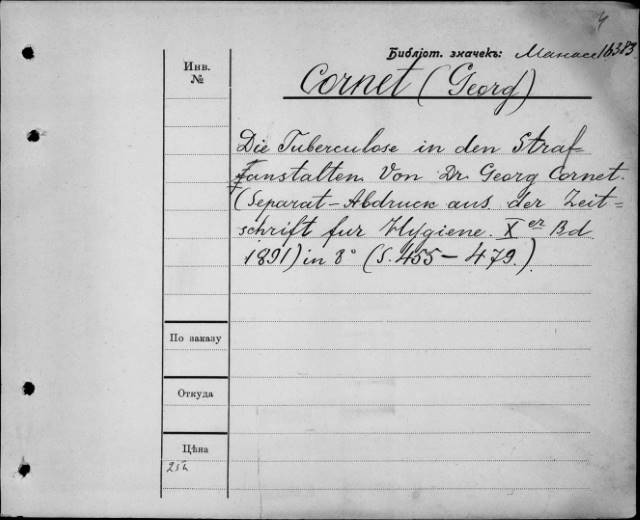 4
Библіот. значекъ: Манассе 16383
Инв. №
Cornet (Georg)
Die Tuberculose in den Straf=
fanstalten. Von Dr. Georg Cornet.
(Separat-Abdruck aus der Zeit=
schrift fur Hygiene. X er Bd
1891) in 8° (S. 455 — 479.)
По заказу
Откуда
Цѣна